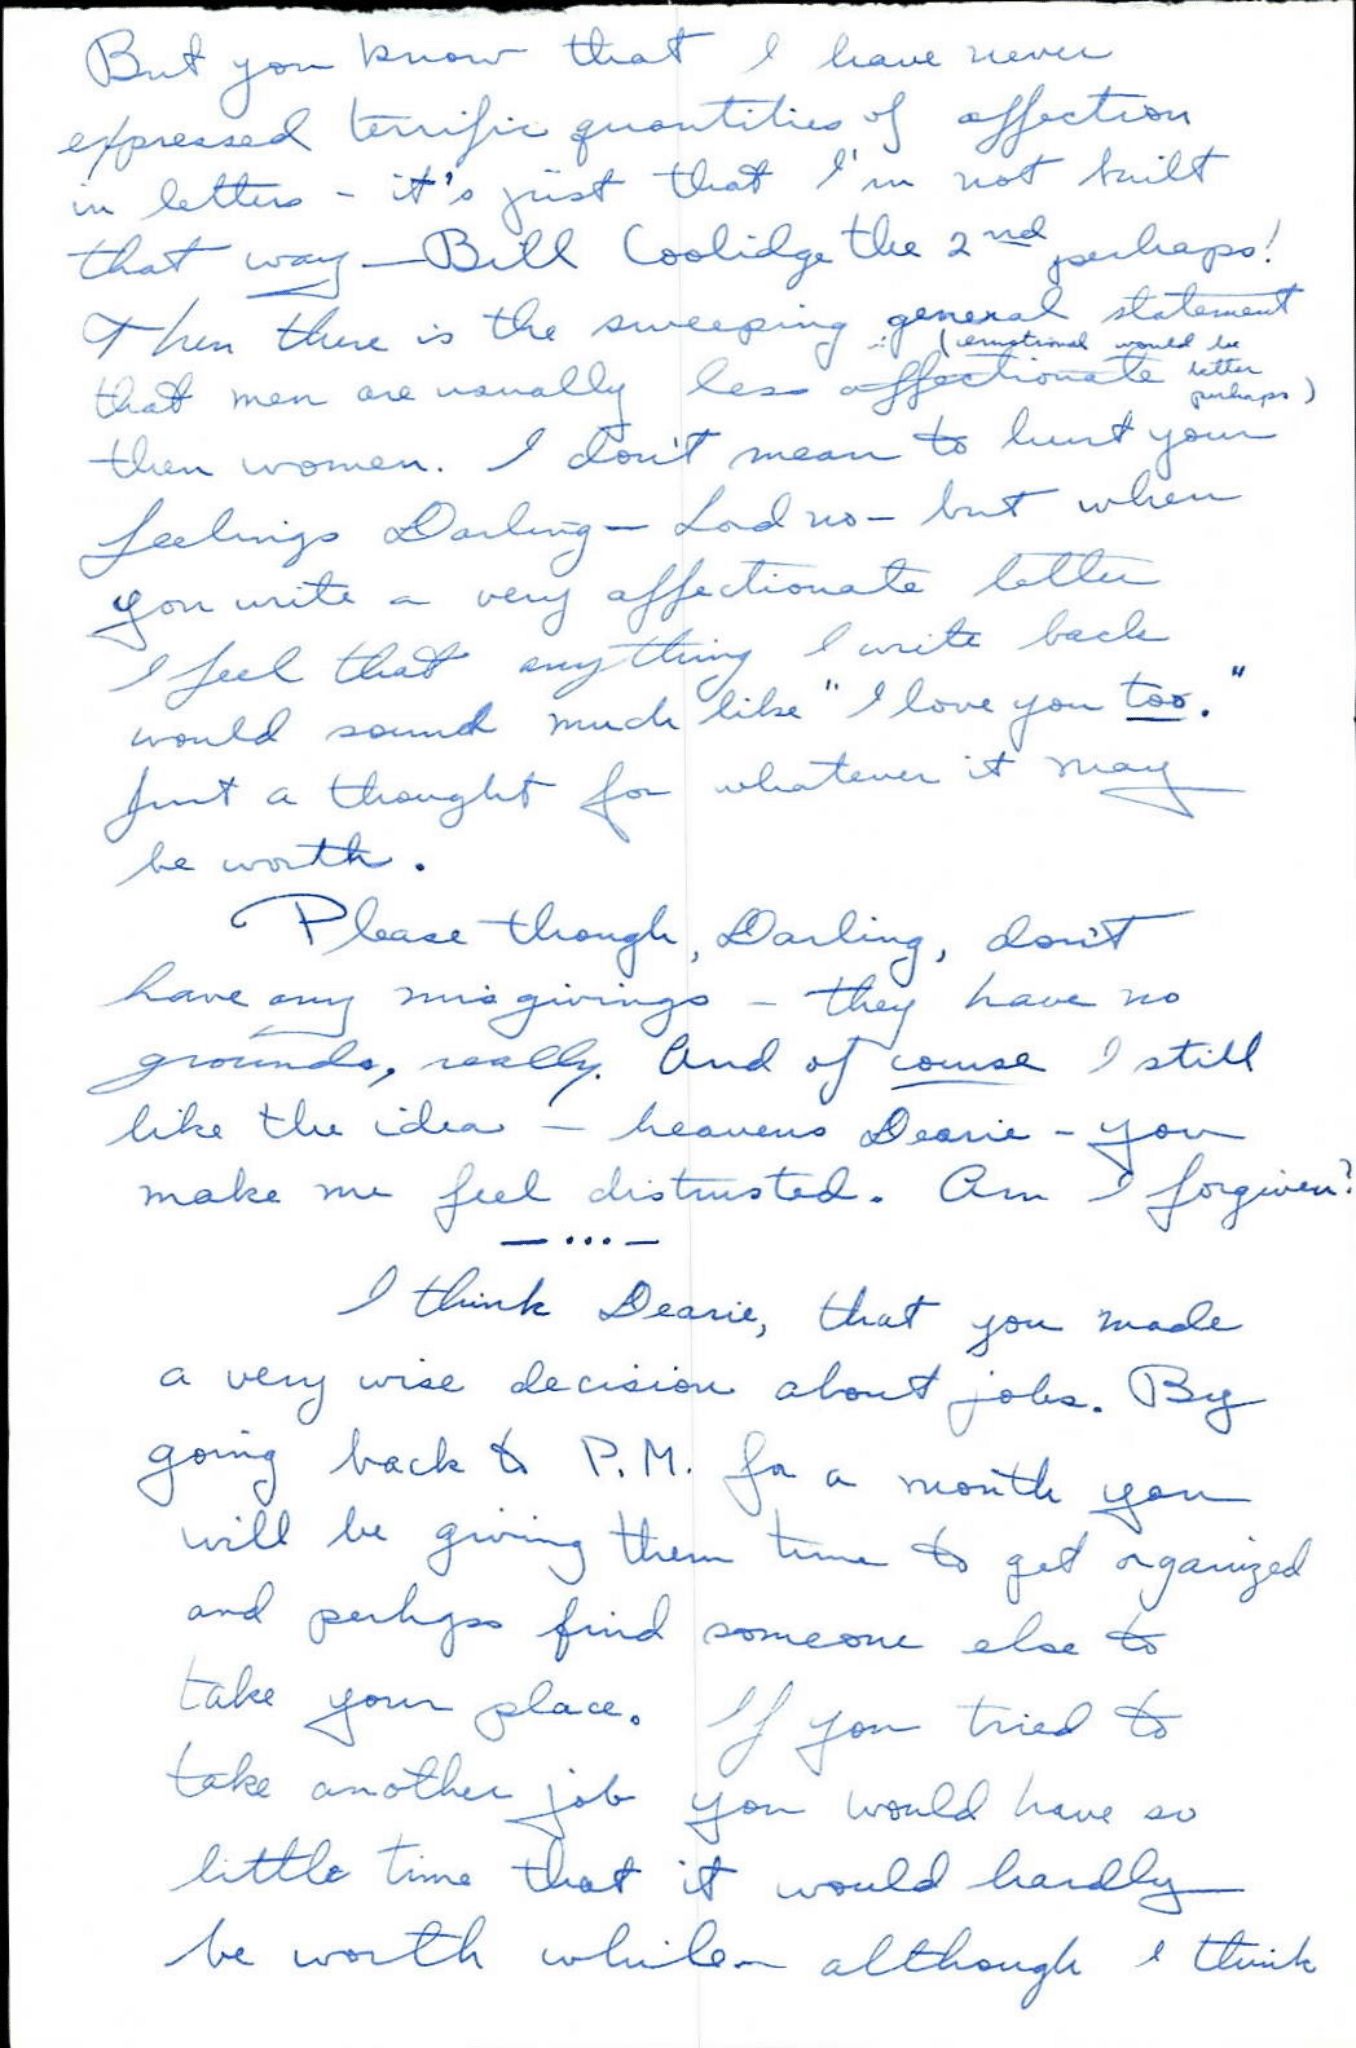 But you know that I have never
expressed terrific quantities of affection
in letters - it's just that I'm not built
that way — Bill Coolidge the 2nd perhaps!
Then there is the sweeping general statement
(emotional would be
that men are usually less affectionate better
perhaps)
then women. I don't mean to hurt your
feelings Darling - Lord no - but when
you write a very affectionate letter
I feel that anything I write back
would sound much like "I love you too."
Just a thought for whatever it may
be worth.
Please though, Darling, don't
have any misgivings - they have no
grounds, really. And of course I still
like the idea - heavens Dearie - you
make me feel distrusted. Am I forgiven?
— ... —
I think Dearie, that you made
a very wise decision about jobs. By
going back to P.M. for a month you
will be giving them time to get organized
and perhaps find someone else to
take your place. If you tried to
take another job you would have so
little time that it would hardly
be worth while - although I think